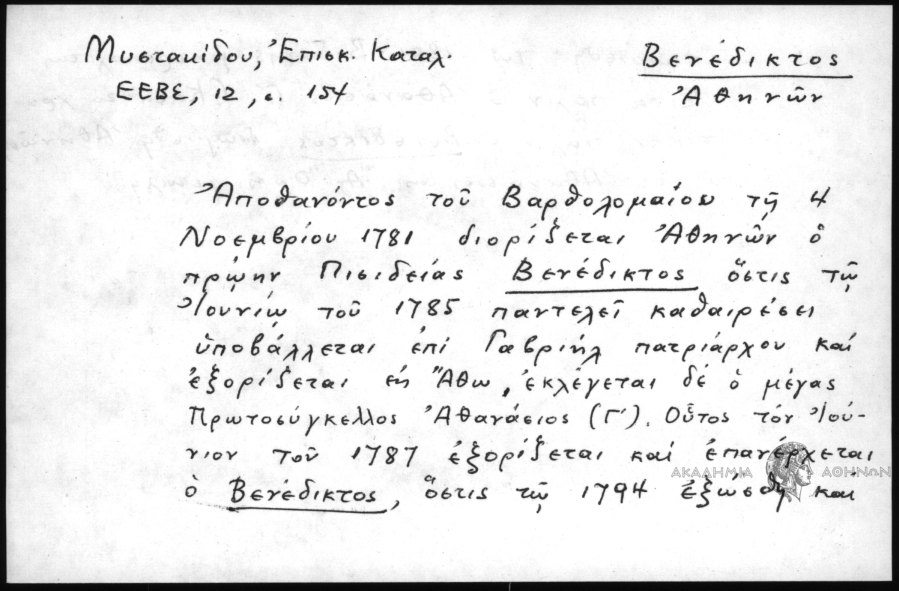 Μυστακίδου, Ἐπισκ. Καταλ.
ΕΕΒΣ, 12, σ. 154
Βενέδικτος
Ἀθηνῶν
Ἀποθανόντος τοῦ Βαρθολομαίου τῇ 4
Νοεμβρίου 1781 διορίζεται Ἀθηνῶν ὁ
πρῴην Πισιδείας Βενέδικτος ὅστις τῷ
Ἰουνίῳ τοῦ 1785 παντελεῖ καθαιρέσει
ὑποβάλλεται ἐπί Γαβριήλ πατριάρχου καί
ἐξορίζεται ἐν Ἄθῳ, ἐκλέγεται δέ ὁ μέγας
Πρωτοσύγκελλος Ἀθανάσιος (Γ'). Οὗτος τόν Ἰού-
νιον τοῦ 1787 ἐξορίζεται καί ἐπανέρχεται
ὁ Βενέδικτος, ὅστις τῷ 1794 ἐξώσθη καί
ΑΚΑΔΗΜΙΑ ΑΘΗΝΩΝ